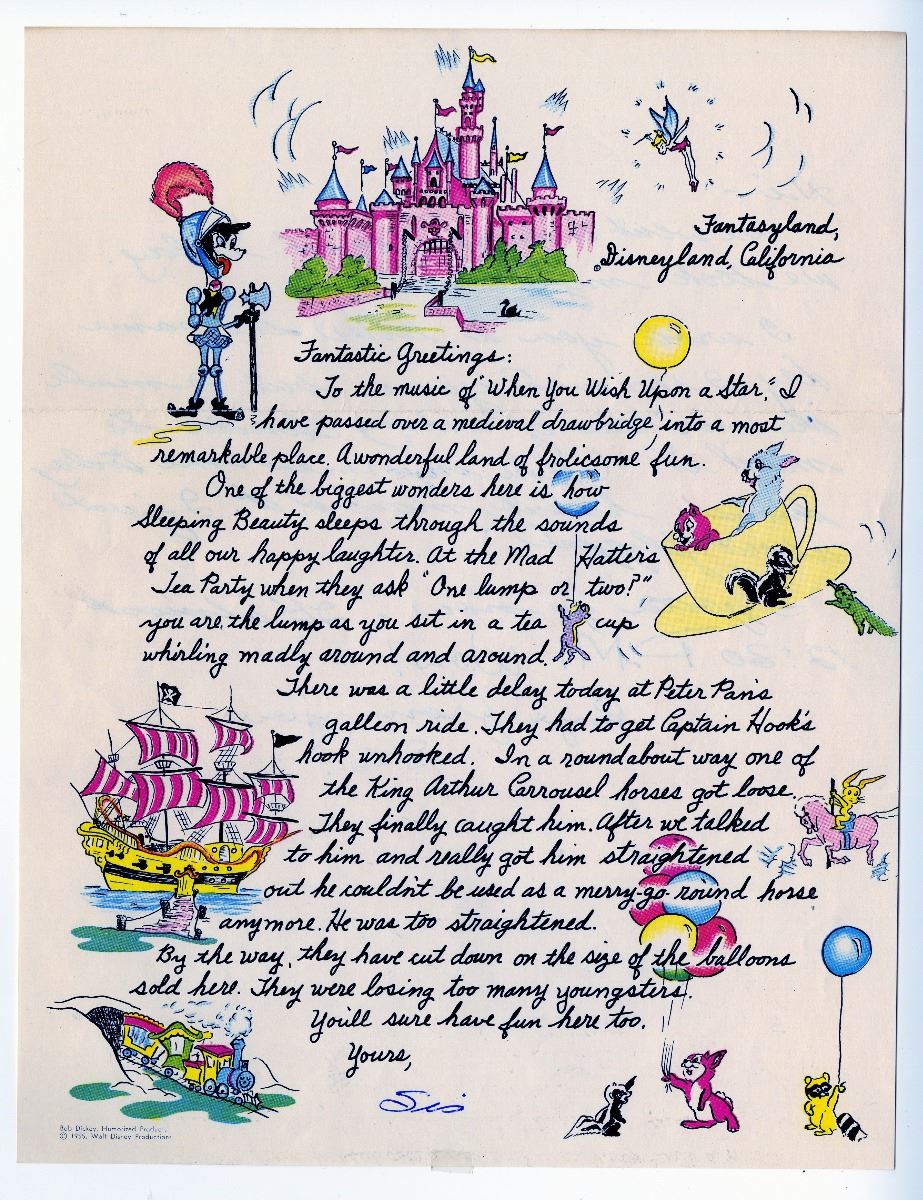 Fantasyland,
Disneyland, California
Fantastic Greetings:
To the music of "When You Wish Upon a Star," I
have passed over a medieval drawbridge into a most
remarkable place. A wonderful land of frolicsome fun.
One of the biggest wonders here is how
Sleeping Beauty sleeps through the sounds
of all our happy laughter. At the Mad Hatter's
Tea Party when they ask "One lump or two?"
you are the lump as you sit in a tea cup
whirling madly around and around.
There was a little delay today at Peter Pan's
galleon ride. They had to get Captain Hook's
hook unhooked. In a roundabout way one of
the King Arthur Carrousel horses got loose.
They finally caught him. After we talked
to him and really got him straightened
out he couldn't be used as a merry-go-round horse
anymore. He was too straightened.
By the way, they have cut down on the size of the balloons
sold here. They were losing too many youngsters.
You'll sure have fun here too.
Yours,
Sis
Bob Dickey, Humorized Product,
© 1955, Walt Disney Productions